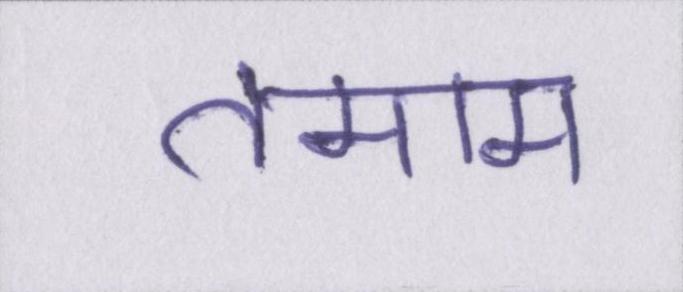 तमाम